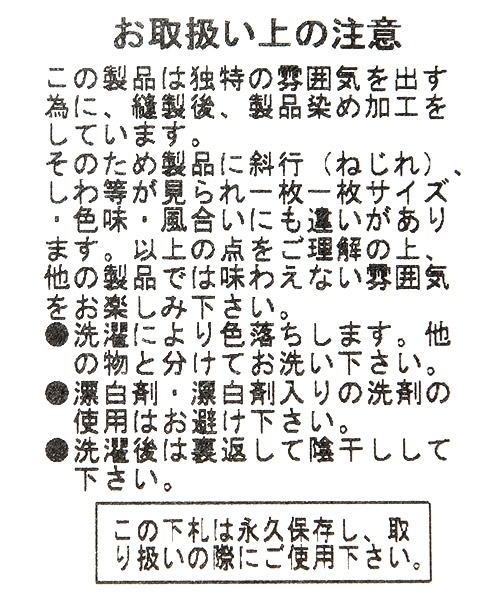 お取扱い上の注意
この製品は独特の雰囲気を出す
為に、縫製後、製品染め加工を
しています。
そのため製品に斜行（ねじれ）、
しわ等が見られ一枚一枚サイズ
・色味・風合いにも違いがあり
ます。以上の点をご理解の上、
他の製品では味わえない雰囲気
をお楽しみ下さい。
●洗濯により色落ちします。他
の物と分けてお洗い下さい。
●漂白剤・漂白剤入りの洗剤の
使用はお避け下さい。
●洗濯後は裏返して陰干しして
下さい。
この下札は永久保存し、取
り扱いの際にご使用下さい。